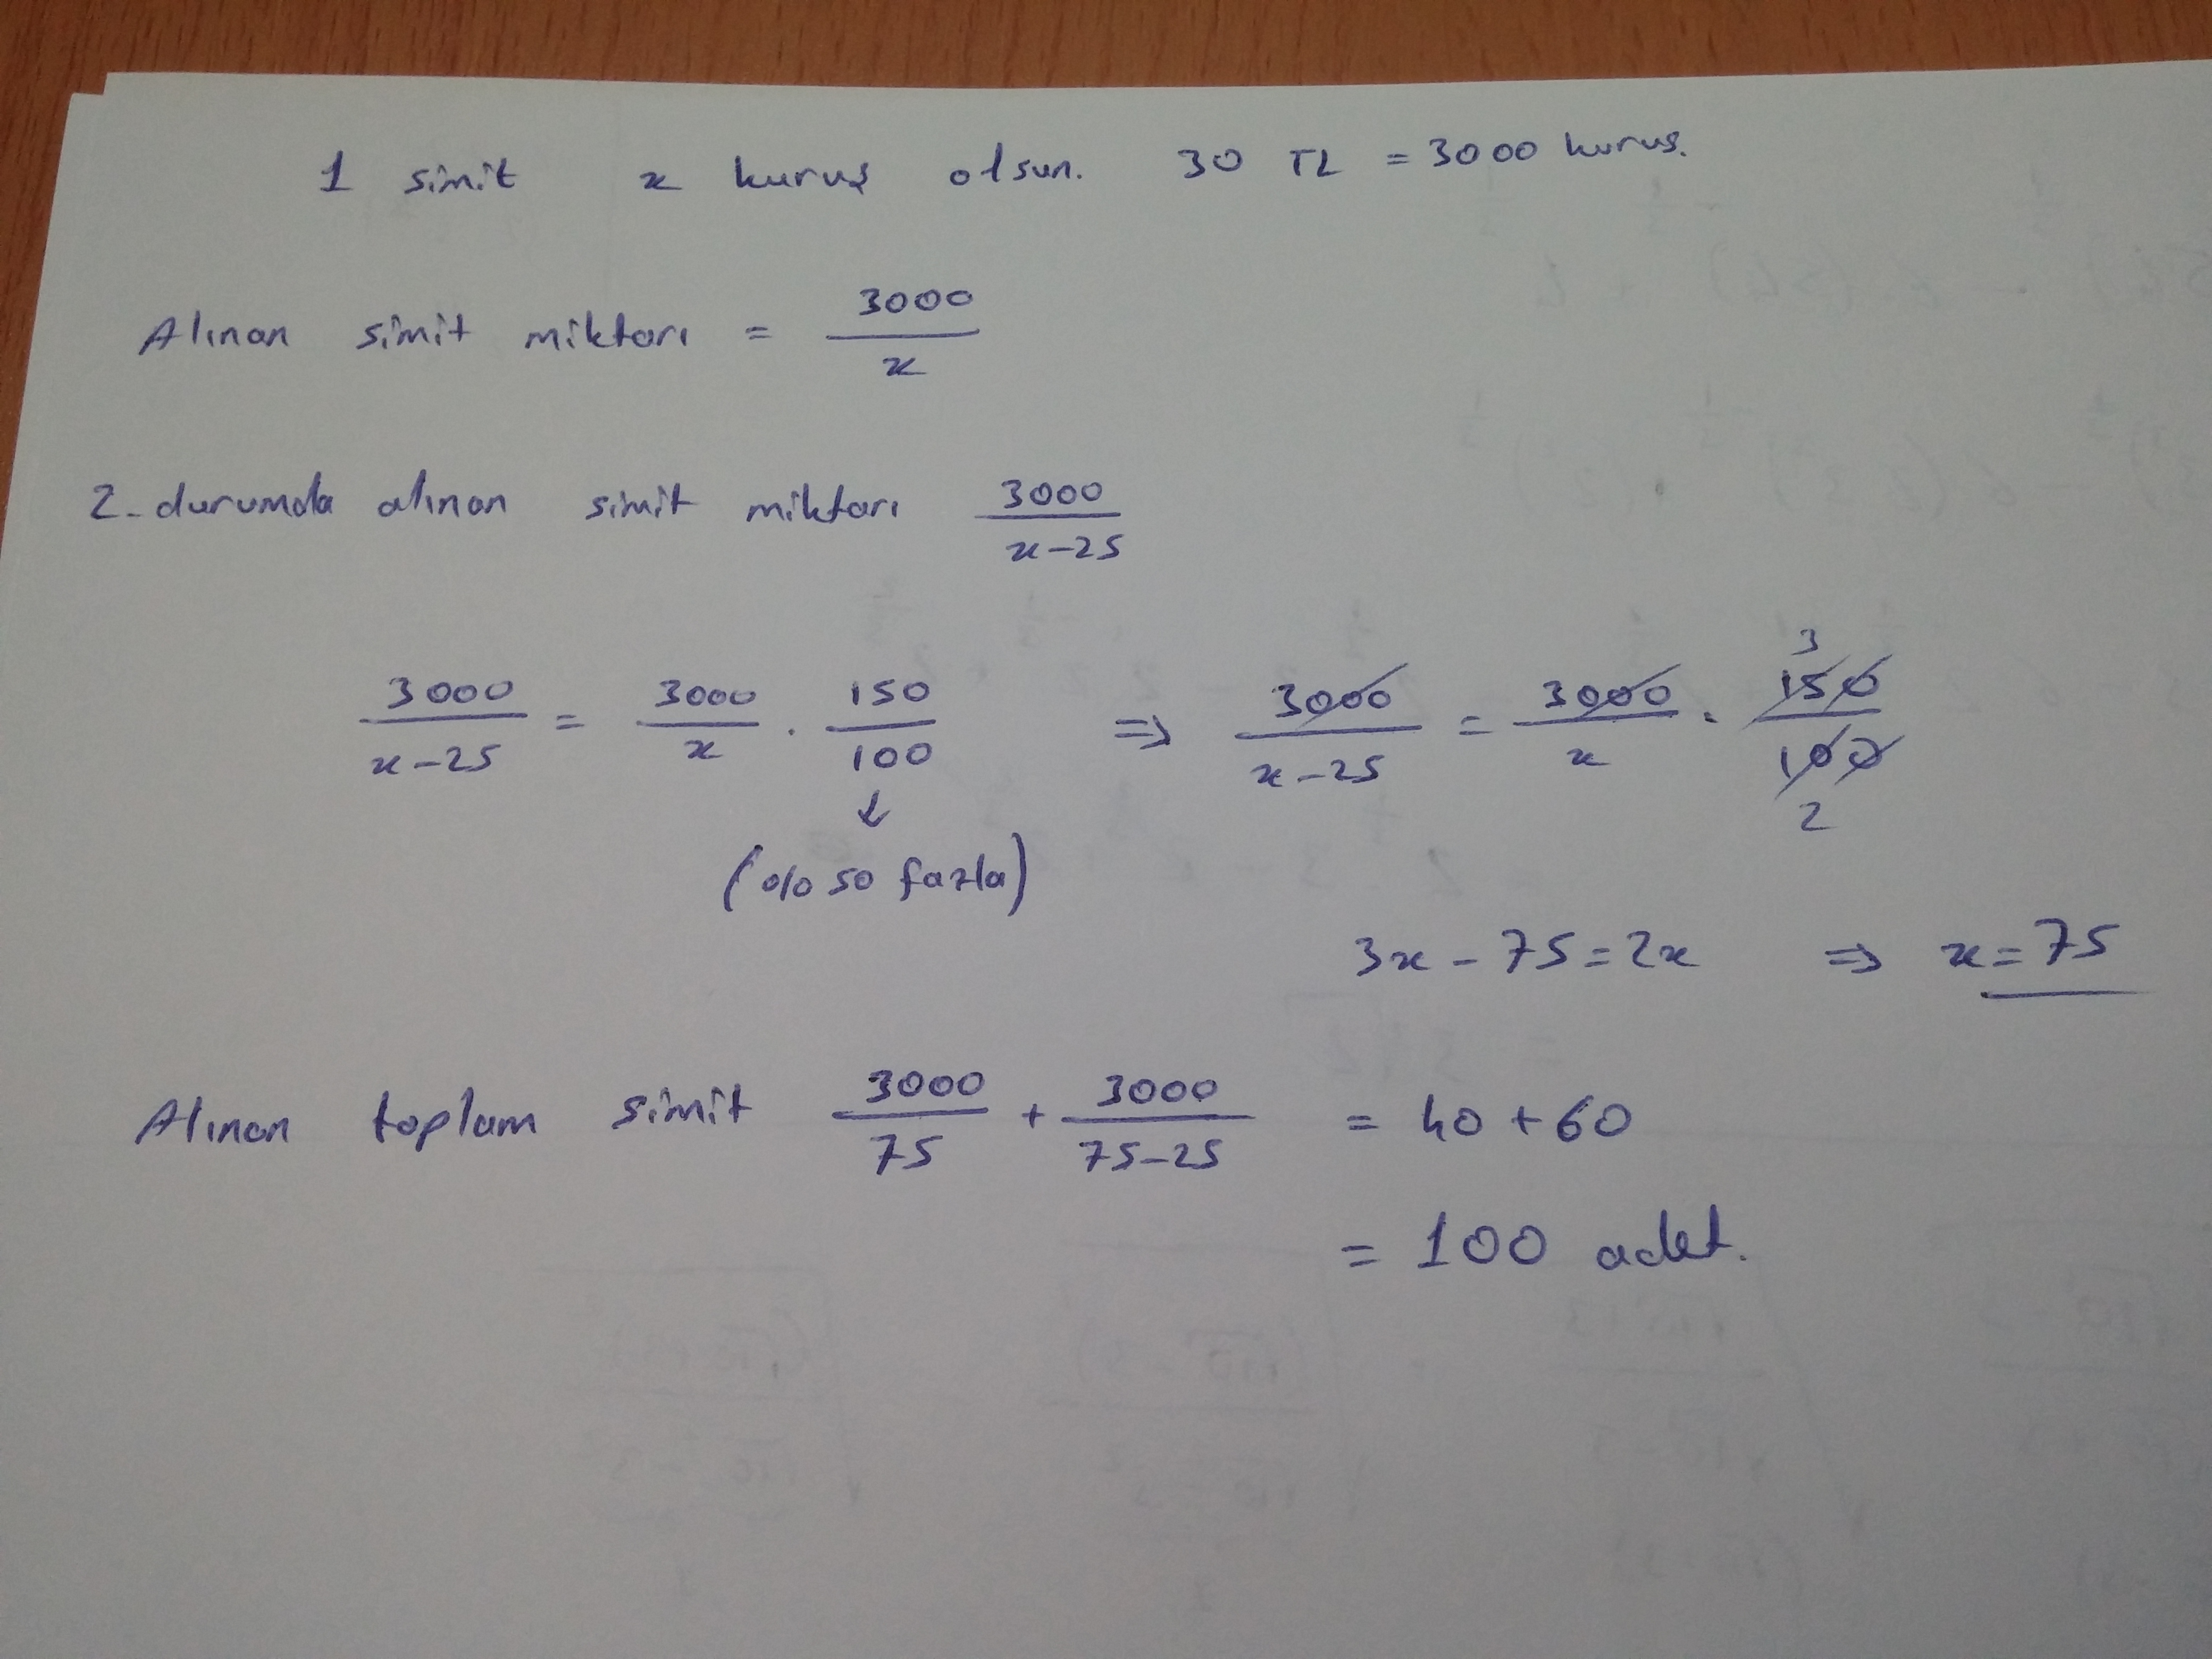 1 simit x kuruş olsun. 30 TL = 3000 kuruş.
Alınan simit miktarı = 3000/x
2-durumda alınan simit miktarı 3000/x-25
3000/x-25 = 3000/x . 150/100 ⇒ 3000/x-25 = 3000/x . 150/100 3 2
↓
(%50 fazla)
3x - 75 = 2x ⇒ x = 75
Alınan toplam simit 3000/75 + 3000/75-25 = 40 + 60
= 100 adet.